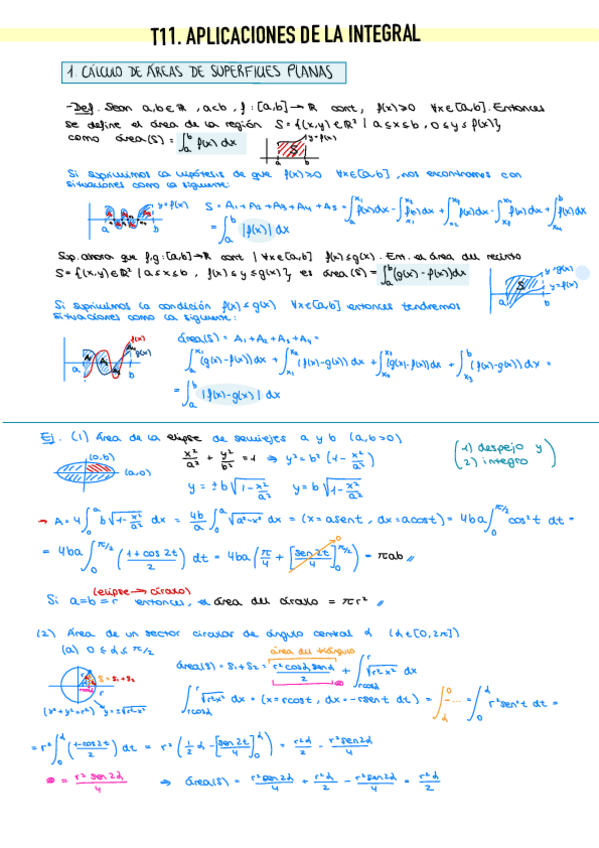 T11. APLICACIONES DE LA INTEGRAL
1. CÁLCULO DE ÁREAS DE SUPERFICIES PLANAS
-Def. Sean a,b∈ℝ, a<b, f:[a,b]→ℝ cont, f(x)≥0 ∀x∈[a,b]. Entonces
se define el área de la región S={(x,y)∈ℝ² | a≤x≤b, 0≤y≤f(x)}
como área(S) = ∫_a^b f(x) dx
S y=f(x) a b
Si suprimimos la hipótesis de que f(x)≥0 ∀x∈[a,b], nos encontramos con
situaciones como la siguiente:
y=f(x) a b
S = A₁+A₂+A₃+A₄+A₅ = ∫_a^{x₁} f(x)dx - ∫_{x₁}^{x₂} f(x)dx + ∫_{x₂}^{x₃} f(x)dx - ∫_{x₃}^{x₄} f(x)dx + ∫_{x₄}^b f(x)dx
= ∫_a^b |f(x)| dx
Sup. ahora que f,g:[a,b]→ℝ cont | ∀x∈[a,b] f(x)≤g(x). Ent. el área del recinto
S={(x,y)∈ℝ² | a≤x≤b, f(x)≤y≤g(x)} es área(S) = ∫_a^b (g(x)-f(x))dx
S y=g(x) y=f(x) a b
Si suprimimos la condición f(x)≤g(x) ∀x∈[a,b] entonces tendremos
situaciones como la siguiente:
f(x) g(x) a b
área(S) = A₁+A₂+A₃+A₄ =
= ∫_a^{x₁} (g(x)-f(x))dx + ∫_{x₁}^{x₂} (f(x)-g(x))dx + ∫_{x₂}^{x₃} (g(x)-f(x))dx + ∫_{x₃}^b (f(x)-g(x))dx =
= ∫_a^b |f(x)-g(x)| dx
Ej. (1) Área de la elipse de semiejes a y b (a,b>0)
(0,b) (a,0)
x²/a² + y²/b² = 1 ⇒ y² = b² (1 - x²/a²)
(1) despejo y
2) integro)
y = ± b √(1-x²/a²) y = b √(1-x²/a²)
→ A = 4 ∫_0^a b √(1-x²/a²) dx = 4b/a ∫_0^a √(a²-x²) dx = (x=asent, dx=acost) = 4ba ∫_0^{π/2} cos²t dt =
= 4ba ∫_0^{π/2} ((1+cos2t)/2) dt = 4ba (π/4 + [sen2t/4]_0^{π/2}) = πab //
0
(elipse → círculo)
Si a=b=r entonces, el área del círculo = πr² //
(2) Área de un sector circular de ángulo central α (α∈[0,2π])
(a) 0≤α≤π/2
área del triángulo
S=S₁+S₂
r
(x²+y²=r²) y=±√(r²-x²)
área(S) = S₁+S₂ = r²cosα senα/2 + ∫_{rcosα}^r √(r²-x²) dx
∫_{rcosα}^r √(r²-x²) dx = (x=rcost, dx=-rsent dt) = ∫_α^0 -... = ∫_0^α r²sen²t dt =
= r² ∫_0^α ((1-cos2t)/2) dt = r² (1/2 α - [sen2t/4]_0^α) = r²α/2 - r²sen2α/4
= r²sen2α/4
⇒ área(S) = r²sen2α/4 + r²α/2 - r²sen2α/4 = r²α/2